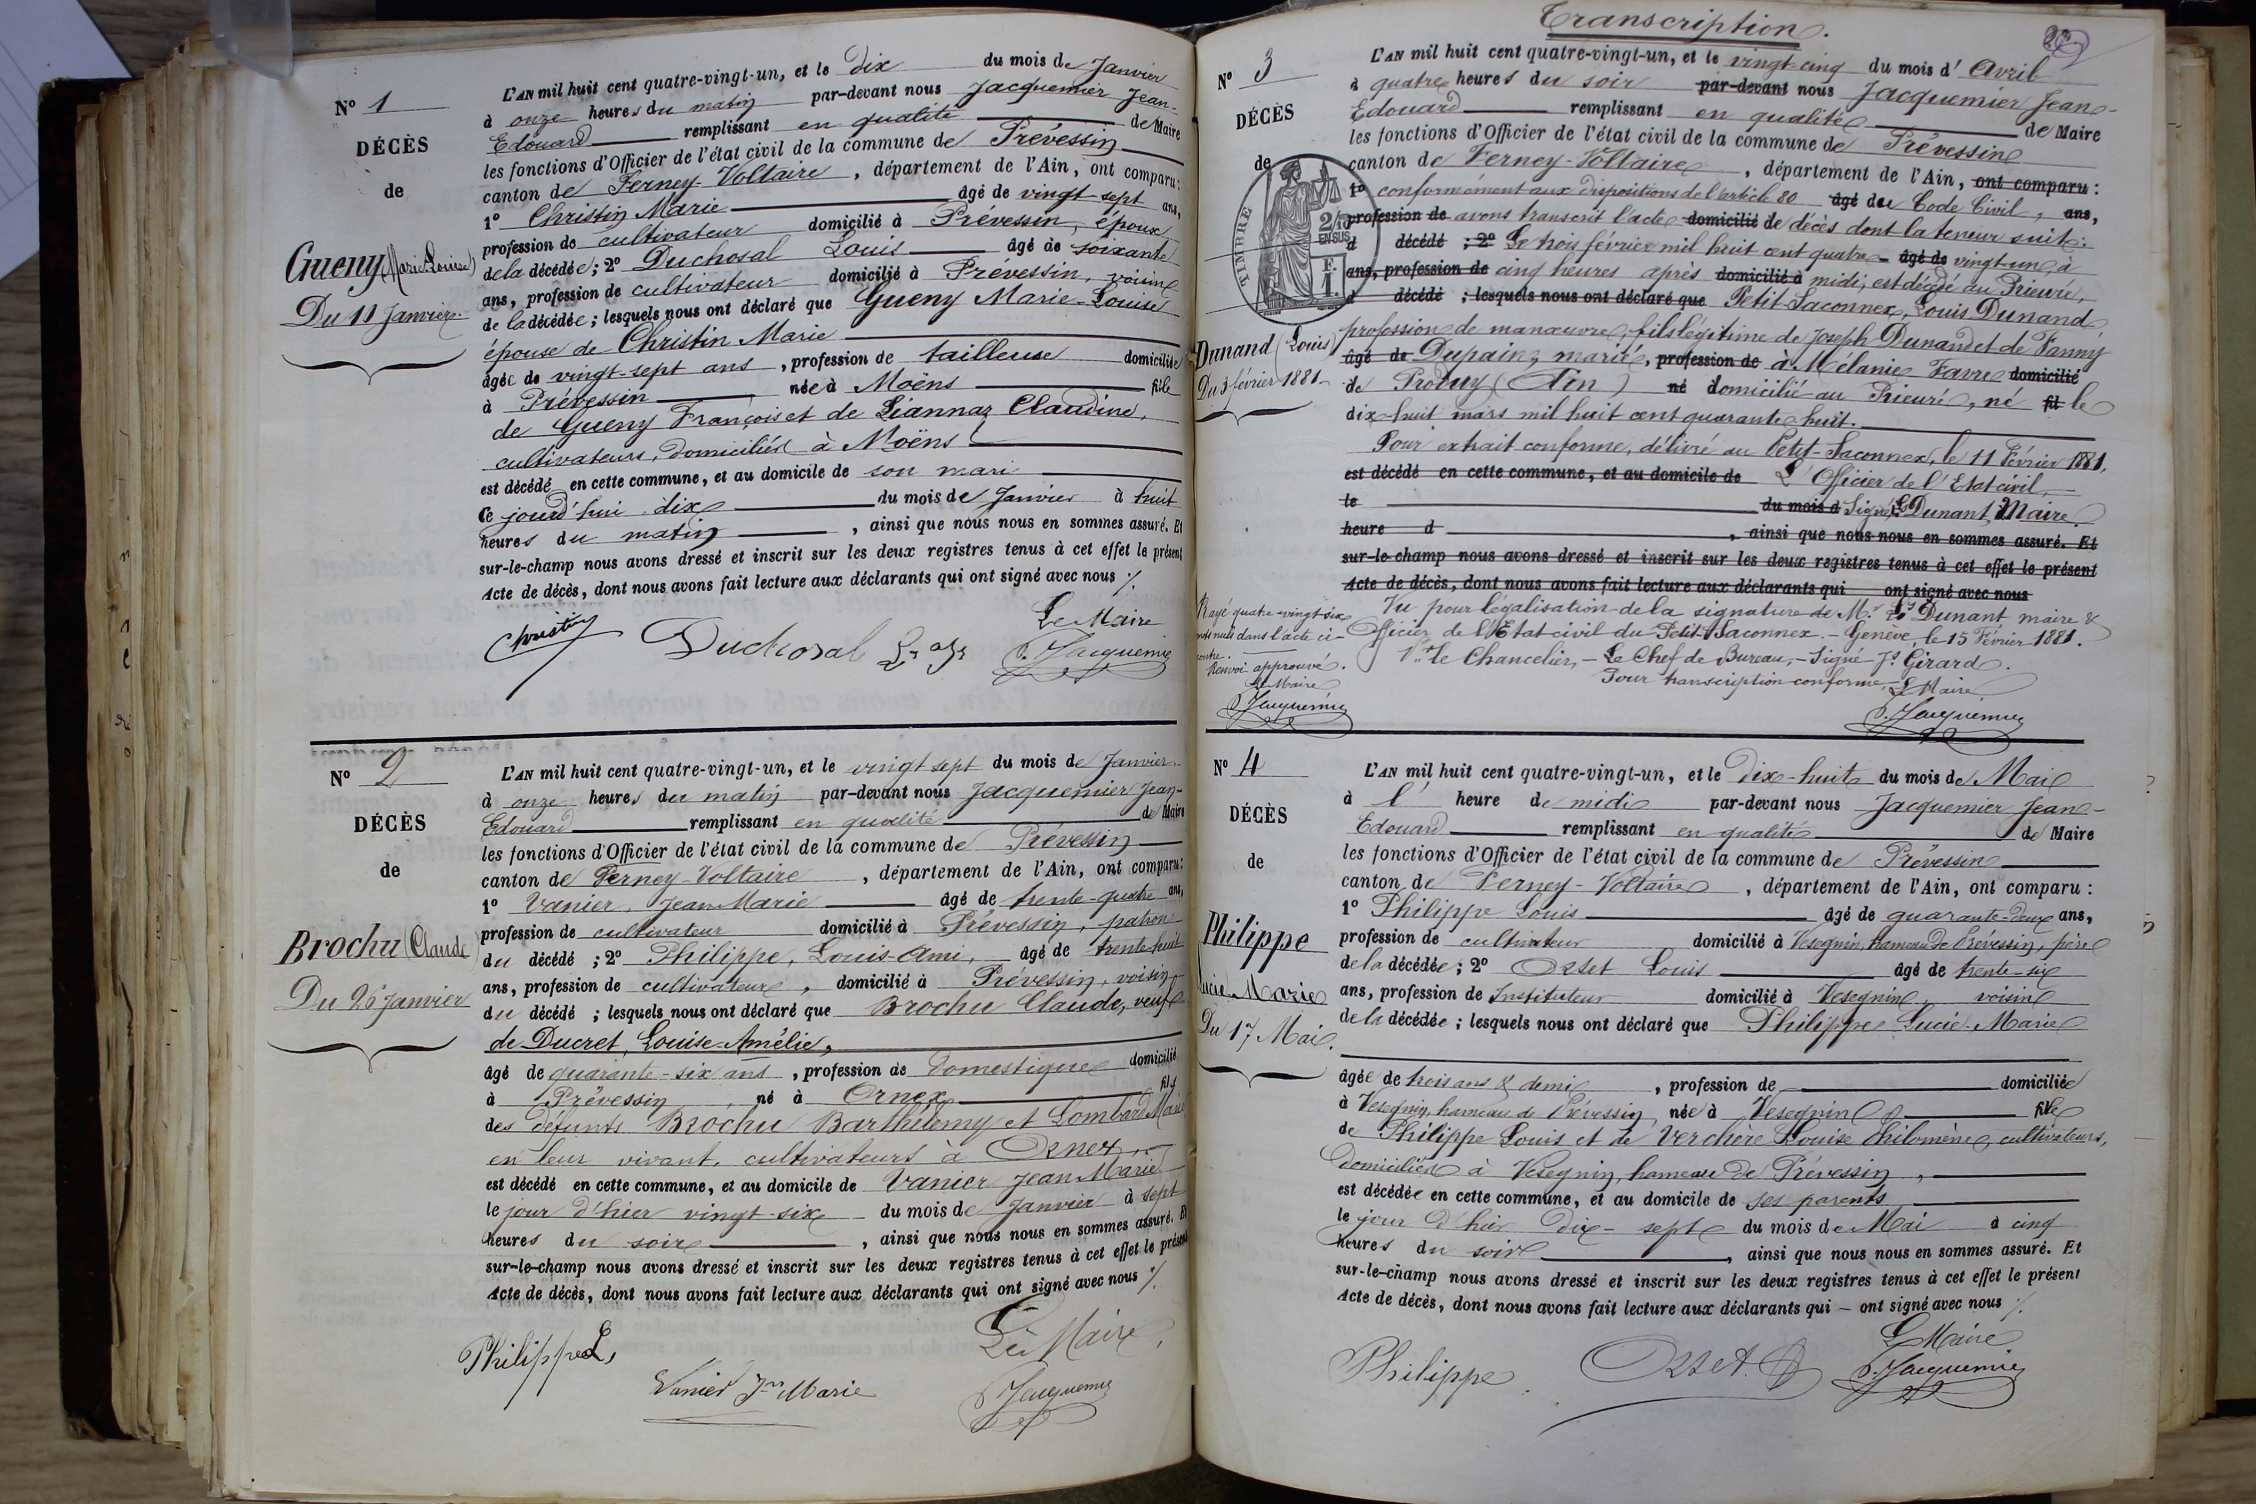 Nº 1
DÉCÈS
de
Gueny (Marie Louise)
Du 11 Janvier.
L'AN mil huit cent quatre-vingt-un, et le dix du mois de Janvier
à onze heures du matin par-devant nous Jacquemier Jean-
Edouard remplissant en qualité de Maire
les fonctions d'Officier de l'état civil de la commune de Prévessin
canton de Ferney-Voltaire, département de l'Ain, ont comparu:
1º Christin Marie âgé de vingt sept ans,
profession de cultivateur domicilié à Prévessin, époux
de la décédée; 2º Duchosal Louis âgé de soixante
ans, profession de cultivateur domicilié à Prévessin, voisin
de la décédée; lesquels nous ont déclaré que Gueny Marie-Louise
épouse de Christin Marie
âgée de vingt-sept ans, profession de tailleuse domiciliée
à Prévessin née à Moëns fille
de Gueny François et de Liannaz Claudine,
cultivateurs, domiciliés à Moëns
est décédé en cette commune, et au domicile de son mari
Ce jourd'hui dix du mois de Janvier à huit
heures du matin, ainsi que nous nous en sommes assuré. Et
sur-le-champ nous avons dressé et inscrit sur les deux registres tenus à cet effet le présent
Acte de décès, dont nous avons fait lecture aux déclarants qui ont signé avec nous ./.
Christin
Duchosal Ls
Le Maire
Jacquemier
Nº 2
DÉCÈS
de
Brochu (Claude)
Du 26 Janvier
L'AN mil huit cent quatre-vingt-un, et le vingt sept du mois de Janvier
à onze heures du matin par-devant nous Jacquemier Jean-
Edouard remplissant en qualité de Maire
les fonctions d'Officier de l'état civil de la commune de Prévessin
canton de Ferney-Voltaire, département de l'Ain, ont comparu:
1º Vanier, Jean Marie âgé de trente-quatre ans,
profession de cultivateur domicilié à Prévessin, patron
du décédé; 2º Philippe, Louis-Ami, âgé de trente huit
ans, profession de cultivateur, domicilié à Prévessin, voisin
du décédé; lesquels nous ont déclaré que Brochu Claude, veuf
de Ducret, Louise-Amélie,
âgé de quarante-six ans, profession de domestique domicilié
à Prévessin, né à Ornex fils
des défunts Brochu Barthélemy et Lombard Marie
en leur vivant, cultivateurs à Ornex,
est décédé en cette commune, et au domicile de Vanier Jean Marie
le jour d'hier vingt-six du mois de Janvier à sept
heures du soir, ainsi que nous nous en sommes assuré. Et
sur-le-champ nous avons dressé et inscrit sur les deux registres tenus à cet effet le présent
Acte de décès, dont nous avons fait lecture aux déclarants qui ont signé avec nous ./.
Philippe L,
Vanier Jn Marie
Le Maire,
Jacquemier
Transcription.
Nº 3
DÉCÈS
de
TIMBRE
2/10
EN SUS
Dunand (Louis)
Du 3 février 1881
L'AN mil huit cent quatre-vingt-un, et le vingt-cinq du mois d'Avril
à quatre heures du soir par-devant nous Jacquemier Jean-
Edouard remplissant en qualité de Maire
les fonctions d'Officier de l'état civil de la commune de Prévessin
canton de Ferney-Voltaire, département de l'Ain, ont comparu:
1º conformément aux dispositions de l'article 80 âgé du Code Civil, ans,
profession de avons transcrit l'acte domicilié de décès dont la teneur suit:
d décédé; 2º Le trois février mil huit cent quatre- âgé de vingt-un, à
ans, profession de cinq heures après domicilié à midi, est décédé au Prieuré,
d décédé; lesquels nous ont déclaré que Petit Saconnex, Louis Dunand,
profession de manœuvre, fils légitime de Joseph Dunand et de Fanny
âgé de Dupain, marié, profession de à Mélanie Favre domicilié
de (Ain) né domicilié au Prieuré, né fil le
dix-huit mars mil huit cent quarante huit.
Pour extrait conforme, délivré au Petit-Saconnex, le 11 Février 1881.
est décédé en cette commune, et au domicile de L'Officier de l'Etat civil,
le du mois d Signé, Ls Dunant, Maire.
heure d, ainsi que nous nous en sommes assuré. Et
sur-le-champ nous avons dressé et inscrit sur les deux registres tenus à cet effet le présent
Acte de décès, dont nous avons fait lecture aux déclarants qui ont signé avec nous
Vu pour légalisation de la signature de M.r Ls Dunant maire &
Officier de l'Etat civil du Petit-Saconnex. - Genève, le 15 Février 1881.
le Chancelier, - Le Chef de Bureau, - Signé Js Girard.
Pour transcription conforme, Le Maire
Jacquemier
Rayé quatre-vingt-six
mots nuls dans l'acte ci-
contre.
Renvoi approuvé.
Le Maire
Jacquemier
Nº 4
DÉCÈS
de
Philippe
Lucie-Marie
Du 17 Mai.
L'AN mil huit cent quatre-vingt-un, et le dix-huit du mois de Mai
à l' heure de midi par-devant nous Jacquemier Jean-
Edouard remplissant en qualité de Maire
les fonctions d'Officier de l'état civil de la commune de Prévessin
canton de Ferney-Voltaire, département de l'Ain, ont comparu:
1º Philippe Louis âgé de quarante-deux ans,
profession de cultivateur domicilié à Vésegnin, hameau de Prévessin, père
de la décédée; 2º Orset Louis âgé de trente-six
ans, profession de Instituteur domicilié à Vésegnin, voisin
de la décédée; lesquels nous ont déclaré que Philippe Lucie-Marie
âgée de trois ans & demi, profession de domiciliée
à Vésegnin, hameau de Prévessin, née à Vésegnin fille
de Philippe Louis et de Verchère Louise Philomène, cultivateurs,
domiciliés à Vésegnin, hameau de Prévessin,
est décédée en cette commune, et au domicile de ses parents
le jour d'hier dix-sept du mois de Mai à cinq
heures du soir, ainsi que nous nous en sommes assuré. Et
sur-le-champ nous avons dressé et inscrit sur les deux registres tenus à cet effet le présent
Acte de décès, dont nous avons fait lecture aux déclarants qui - ont signé avec nous ./.
Philippe
Orset
Le Maire
Jacquemier